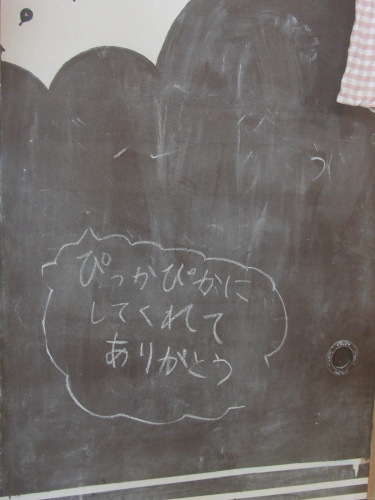 ぴっかぴかに
してくれて
ありがとう